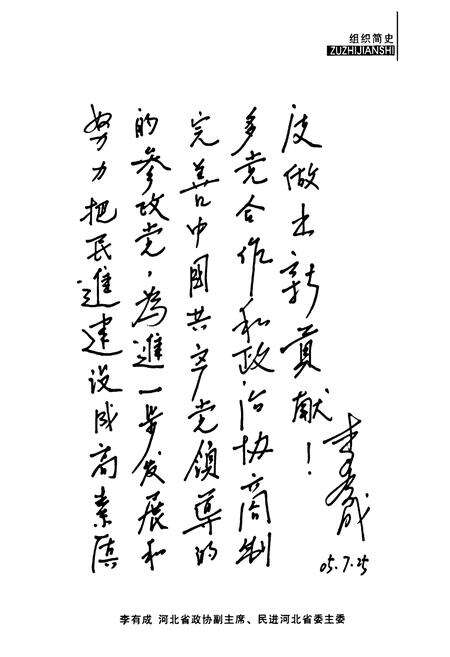 组织简史
ZUZHIJIANSHI
努力把民進建设成高素质
的参政党，為進一步发展和
完善中国共产党领導的
多党合作和政治协商制
度做出新貢献！
李有成
05.7.25
李有成 河北省政协副主席、民进河北省委主委